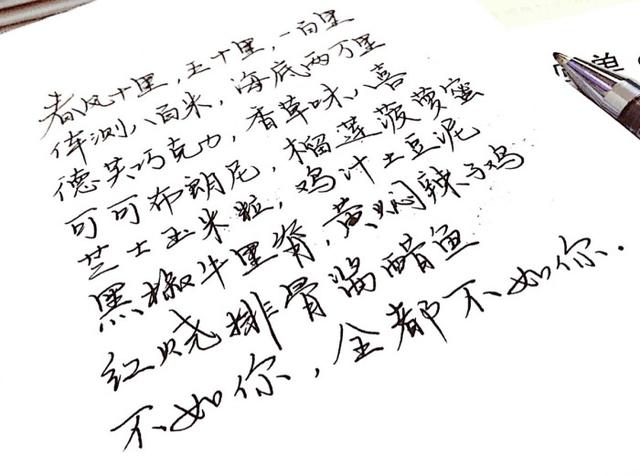 春风十里，五十里，一百里
体测八百米，海底两万里
德芙巧克力，香草味八喜
可可布朗尼，榴莲菠萝蜜
芝士玉米粒，鸡汁土豆泥
黑椒牛里脊，黄焖辣子鸡
红烧排骨酱醋鱼
不如你，全都不如你.
单